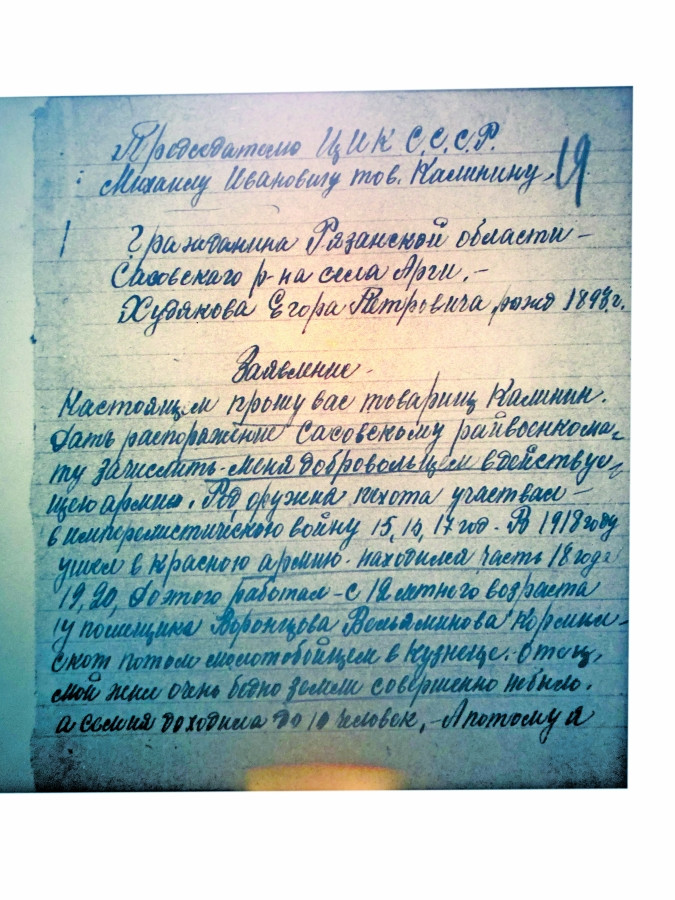 Председателю ЦИК С.С.С.Р.
Михаилу Ивановичу тов. Калинину.
19
Гражданина Рязанской области –
Сасовскаго р-на села Арги. –
Худякова Егора Петровича, рожд 1898 г.
Заявление.
Настоящем прошу вас товарищ Калинин.
Дать распоражение Сасовскому райвоенкома-
ту зачислить меня добровольцем в действую-
щею армию. Род оружиа пехота участвал –
в имперелистическою войну 15, 16, 17 год. В 1918 году
ушел в красною армию. находился часть 18 года
19, 20, до этого работал – с 12 летнего возраста
у помещика Воронцова Вельяминова кормил –
скот потом молотобойцем в кузнеце. – Отец,
мой жил очень бедно земли совершено небыло.
а семия доходила до 10 человек, – А потому я